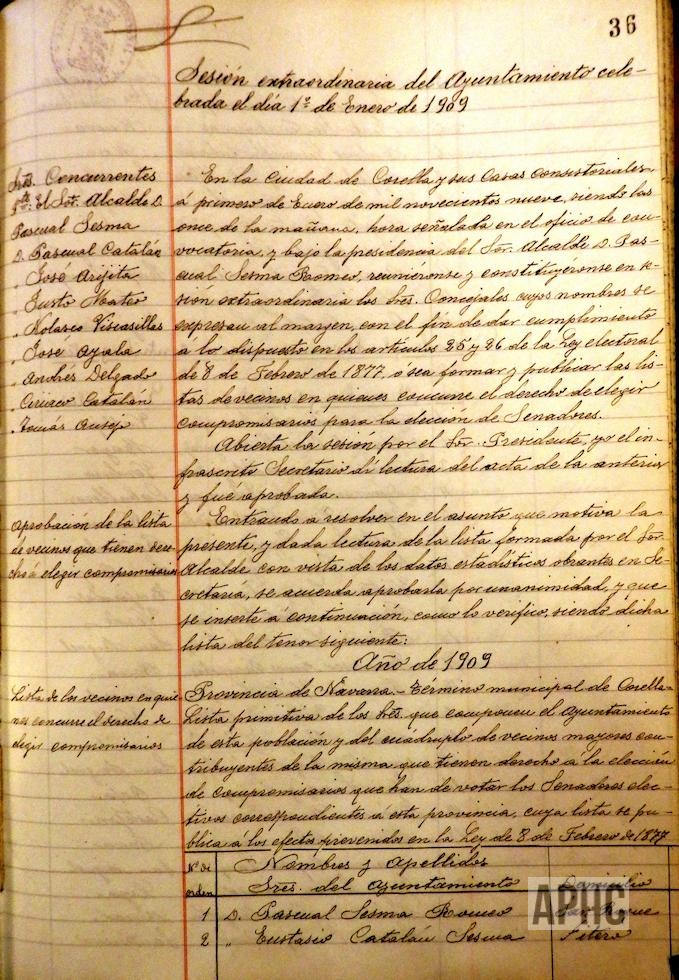 36
Sesión extraordinaria del Ayuntamiento cele-
brada el día 1º de Enero de 1909
Sres. Concurrentes
Pte. El Sor. Alcalde D.
Pascual Sesma
D. Pascual Catalán
„ José Arijita
„ Justo Mateo
„ Nolasco Viscasillas
„ José Ayala
„ Andrés Delgado
„ Ciriaco Catalán
„ Tomás Ausejo
En la Ciudad de Corella y sus Casas Consistoriales
á primero de Enero de mil novecientos nueve, siendo las
once de la mañana, hora señalada en el oficio de con-
vocatoria, y bajo la presidencia del Sor. Alcalde D. Pas-
cual Sesma Romeo, reuniéronse y constituyéronse en se-
sión extraordinaria los Sres. Concejales cuyos nombres se
expresan al margen, con el fin de dar cumplimiento
a lo dispuesto en los artículos 25 y 26 de la Ley electoral
de 8 de Febrero de 1877, o sea formar y publicar las lis-
tas de vecinos en quienes concurre el derecho de elegir
compromisarios para la elección de Senadores.
Abierta la sesión por el Sor. Presidente, yo el in-
frascrito Secretario dí lectura del acta de la anterior
y fue aprobada.
Aprobación de la lista
de vecinos que tienen dere-
cho á elegir compromisarios
Entrando á resolver en el asunto que motiva la
presente, y dada lectura de la lista formada por el Sor.
Alcalde con vista de los datos estadísticos obrantes en Se-
cretaría, se acuerda aprobarla por unanimidad, y que
se inserte á continuación, como lo verifico, siendo dicha
lista del tenor siguiente:
Año de 1909
Lista de los vecinos en quie-
nes concurre el derecho de
elegir compromisarios
Provincia de Navarra - Término municipal de Corella
Lista primitiva de los Sres. que componen el Ayuntamiento
de esta población y del cuádruplo de vecinos mayores con-
tribuyentes de la misma que tienen derecho a la elección
de compromisarios que han de votar los Senadores elec-
tivos correspondientes á esta provincia, cuya lista se pu-
blica á los efectos prevenidos en la Ley de 8 de Febrero de 1877
Nº de orden
Nombres y Apellidos
Sres. del Ayuntamiento
Domicilio
1 D. Pascual Sesma Romeo San Roque
2 „ Eustasio Catalán Sesma Fitero
APHC